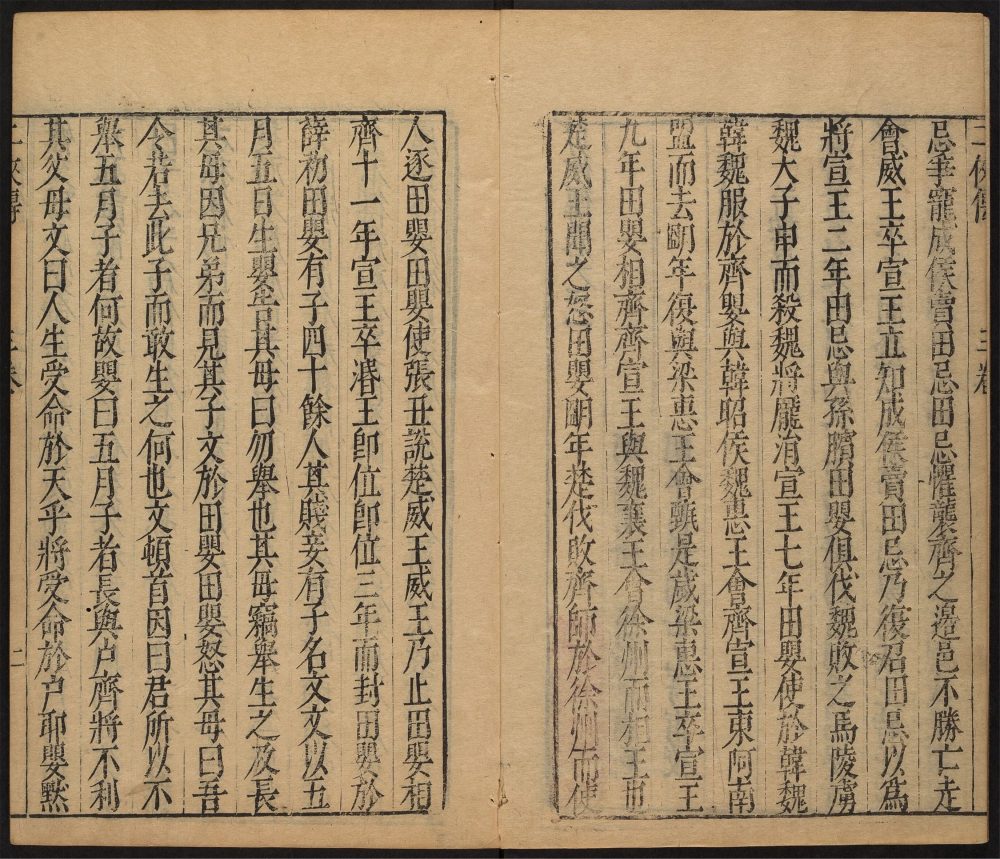 二俠傳
二卷
忌爭寵成侯賣田忌田忌懼襲齊之邊邑不勝亡走
會威王卒宣王立知成侯賣田忌乃復召田忌以為
將宣王二年田忌與孫臏田嬰俱伐魏敗之馬陵虜
魏大子申而殺魏將龐涓宣王七年田嬰使於韓魏
韓魏服於齊嬰與韓昭侯魏惠王會齊宣王東阿南
盟而去明年復與梁惠王會甄是歲梁惠王卒宣王
九年田嬰相齊齊宣王與魏襄王會徐州而相王也
楚威王聞之怒田嬰明年楚伐敗齊師於徐州而使
人逐田嬰田嬰使張丑說楚威王威王乃止田嬰相
齊十一年宣王卒湣王卽位卽位三年而封田嬰於
薛初田嬰有子四十餘人其賤妾有子名文文以五
月五日生嬰告其母曰勿舉也其母竊舉生之及長
其母因兄弟而見其子文於田嬰田嬰怒其母曰吾
令若去此子而敢生之何也文頓首因曰君所以不
舉五月子者何故嬰曰五月子者長與戶齊將不利
其父母文曰人生受命於天乎將受命於戶耶嬰黙
二俠傳
二卷
二